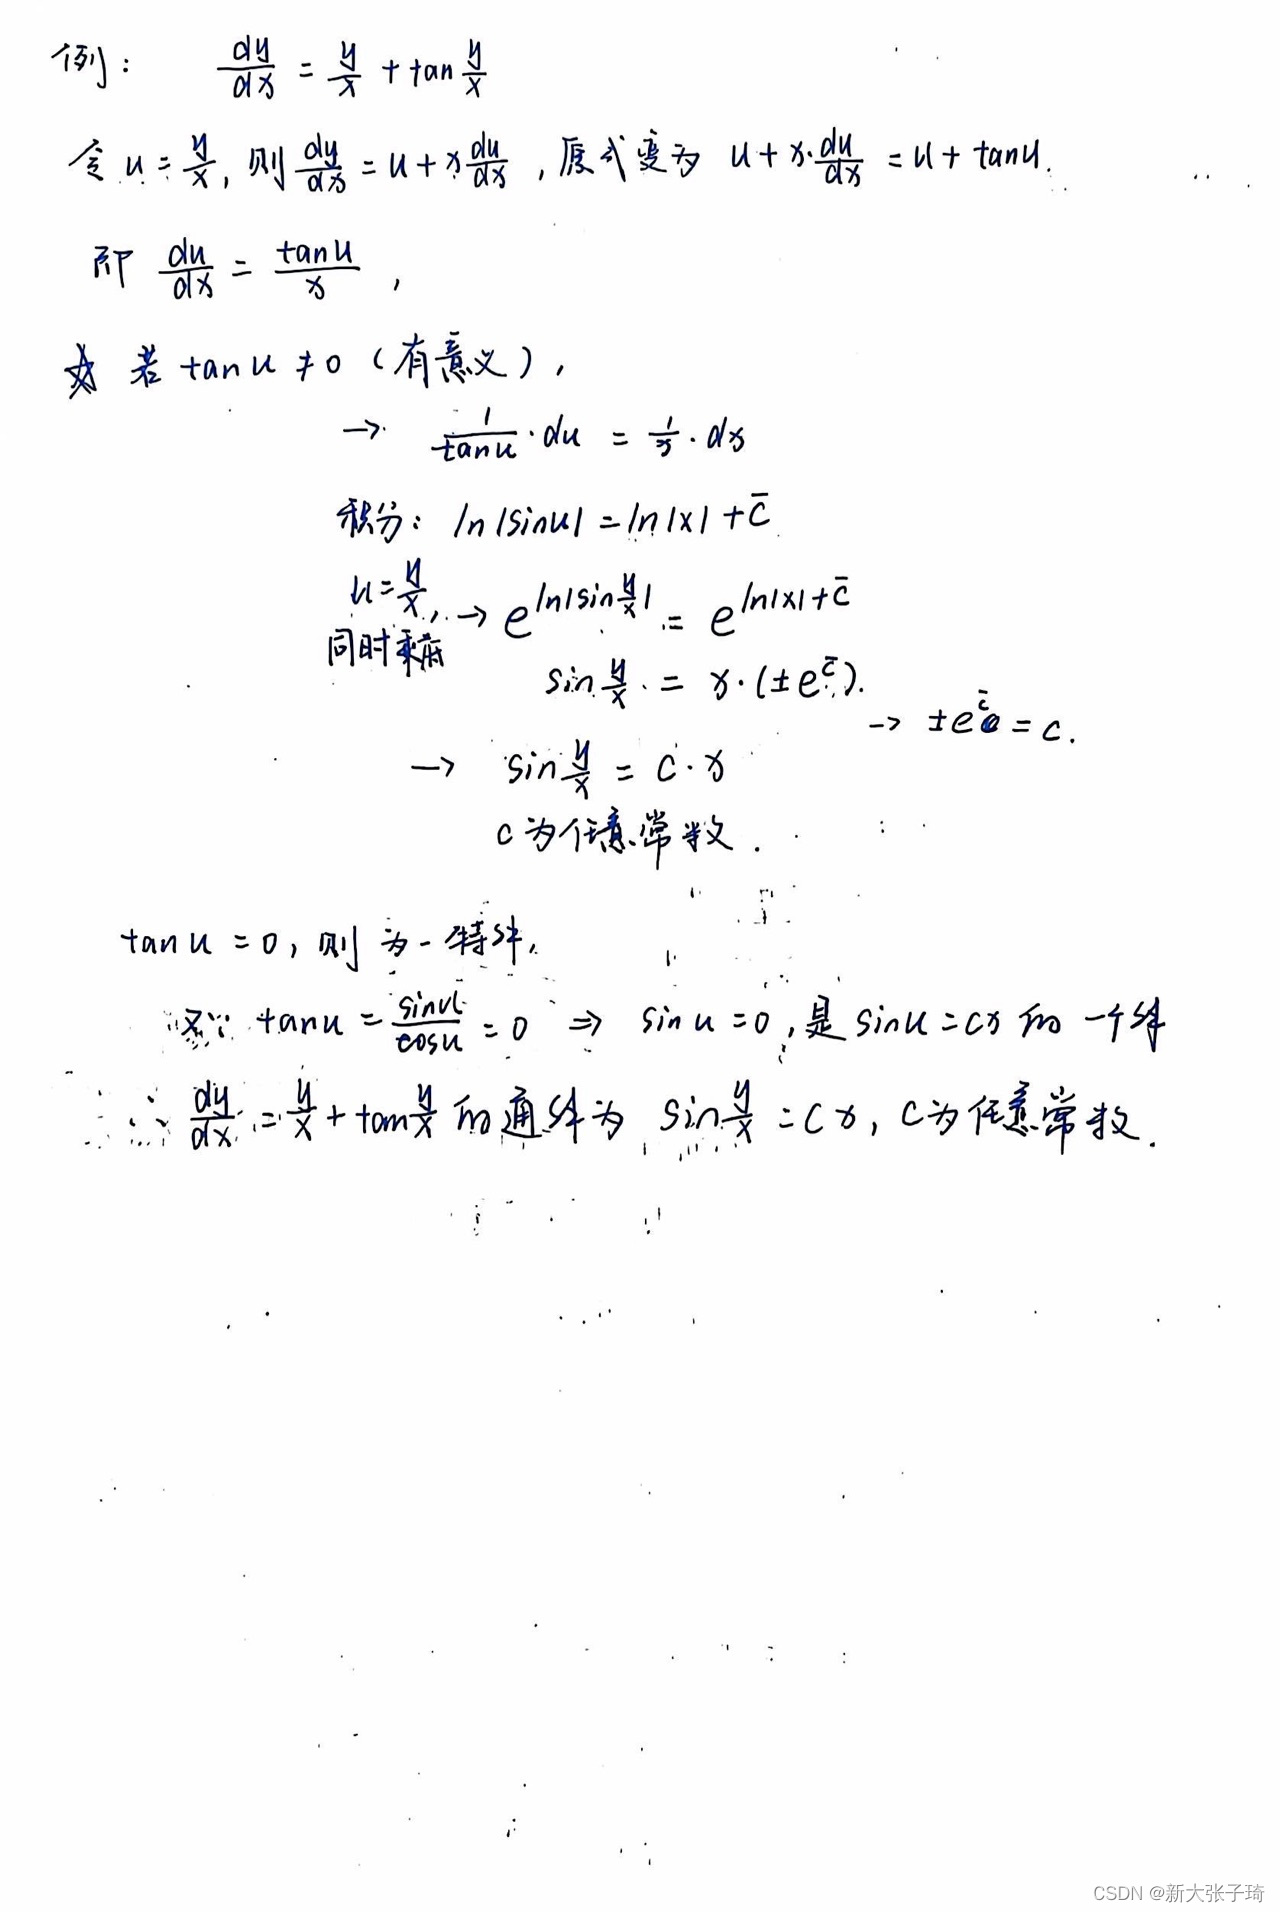 例： dy/dx = y/x + tan y/x
令 u = y/x, 则 dy/dx = u + x du/dx , 原式变为 u + x·du/dx = u + tanu.
即 du/dx = tanu/x ,
☆ 若 tanu ≠ 0 (有意义) ,
→ 1/tanu · du = 1/x · dx
积分: ln|sinu| = ln|x| + c̄
u = y/x, → e^{ln|sin y/x|} = e^{ln|x| + c̄}
同时乘
sin y/x = x·(±e^{c̄}).
→ ±e^{c̄} = c.
→ sin y/x = c·x
c为任意常数.
tanu = 0, 则为一特解.
又∵ tanu = sinu/cosu = 0 ⇒ sinu = 0, 是 sinu = cx 的一个解
∴ dy/dx = y/x + tan y/x 的通解为 sin y/x = cx, c为任意常数.
CSDN @新大张子琦